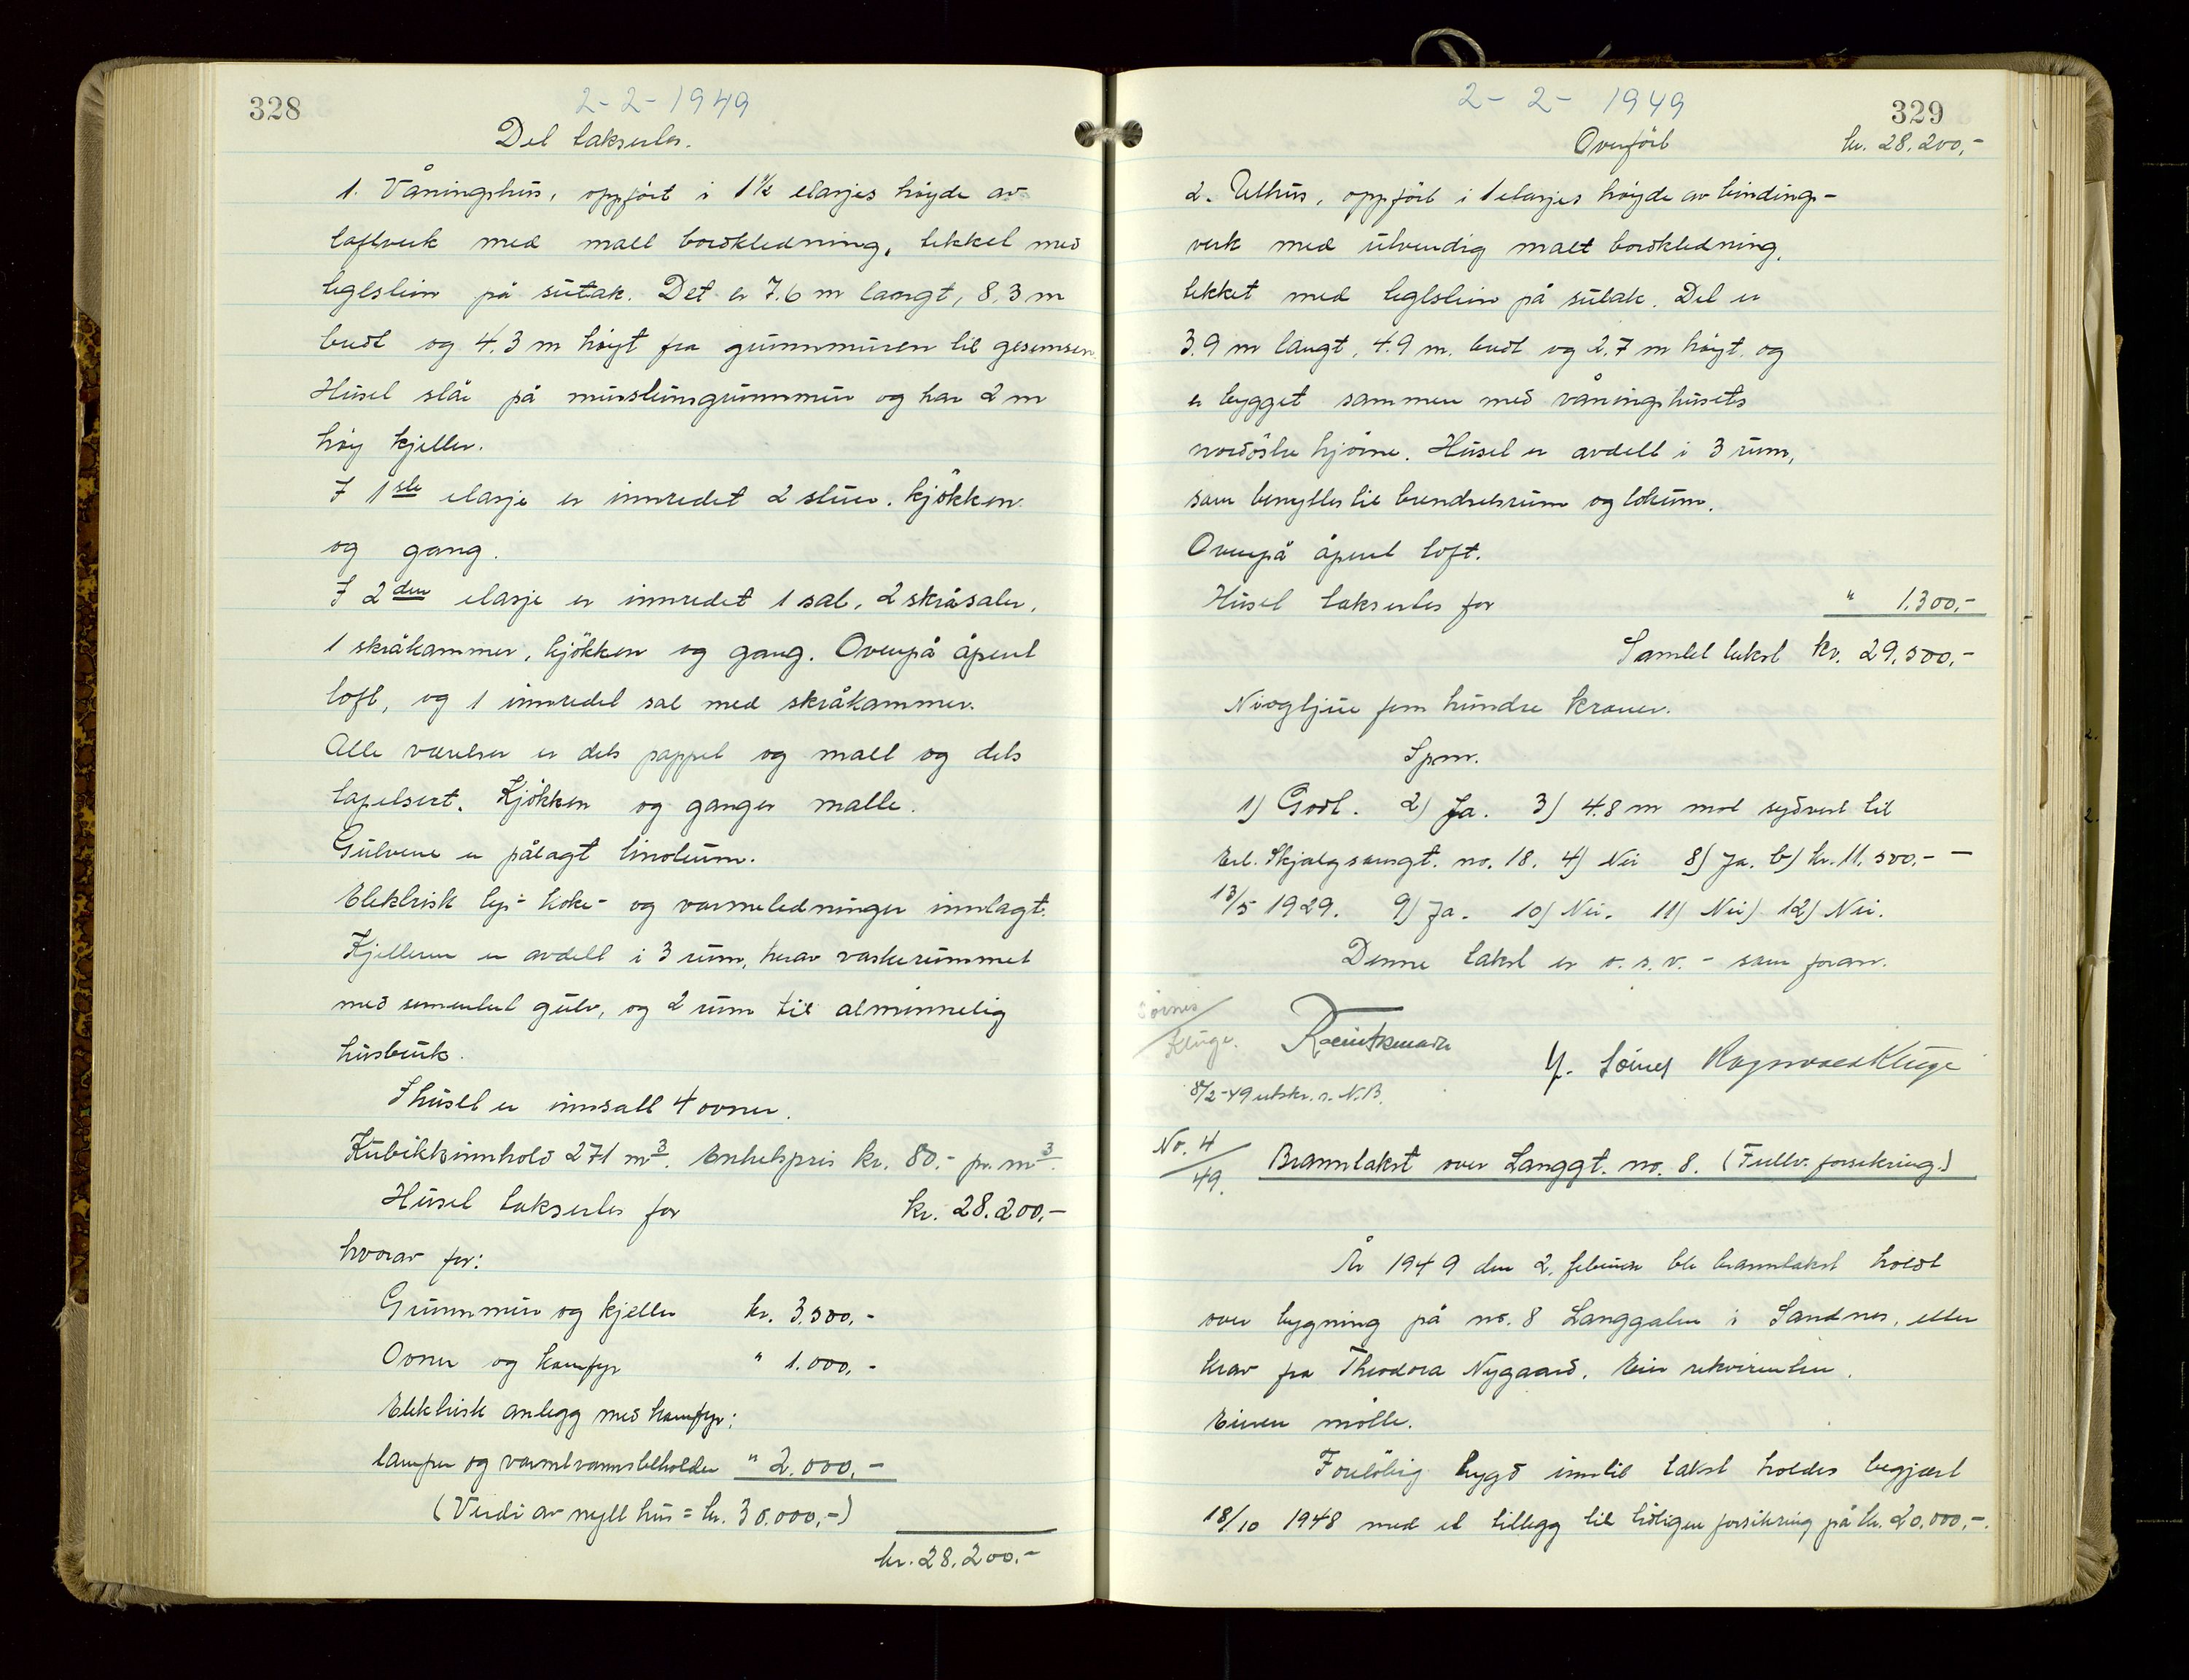 328
2-2-1949
Det takseres.
1. Våningshus, oppført i 1½ etasjes høyde av
laftverk med malt bordkledning, tekket med
teglstein på sutak. Det er 7.6 m langt, 8,3 m
bredt og 4.3 m høyt fra grunnmuren til gesemsen.
Huset står på mursteinsgrunnmur og har 2 m
høy kjeller.
I 1ste etasje er innredet 2 stuer, kjøkken
og gang.
I 2den etasje er innredet 1 sal, 2 skråsaler,
1 skråkammer, kjøkken og gang. Ovenpå åpent
loft, og 1 innredet sal med skråkammer.
Alle værelser er dels pappet og malt og dels
tapetsert. Kjøkken og ganger malte.
Gulvene er pålagt linoleum.
Elektrisk lys- koke- og varmeledninger innlagt.
Kjelleren er avdelt i 3 rum, herav vaskerummet
med sementert gulv, og 2 rum til alminnelig
husbruk.
I huset er innsatt 4 ovner.
Kubikkinnhold 271 m3. Enhetspris kr. 80.- pr. m3.
Huset takseres for kr. 28.200,-
hvorav for:
Grunnmur og kjeller kr. 3.500,-
Ovner og komfyr " 1.000,-
Elektrisk anlegg med komfyr;
lamper og varmtvannsbeholder " 2.000,-
(Verdi av nytt hus = kr. 30.000,-)
kr. 28.200.-
2- 2- 1949
329
Overført kr. 28.200,-
2. Uthus, oppført i 1 etasjes høyde av bindings-
verk med utvendig malt bordkledning,
tekket med teglstein på sutak. Det er
3.9 m langt, 4.9 m. bredt og 2.7 m høyt, og
er bygget sammen med våningshusets
nordøstre hjørne. Huset er avdelt i 3 rum,
som benyttes til brendselsrum og lokum.
Ovenpå åpent loft.
Huset takseres for " 1.300,-
Samlet takst kr. 29.500,-
Niogtjue fem hundre kroner.
Spm.
1) Godt. 2) Ja. 3) 4.8 m mot sydvest til
Erl. Skjalgsonsgt. no. 18. 4) Nei 8) Ja. b) kr. 11.500.- -
13/5 1929. 9) Ja. 10) Nei. 11) Nei) 12) Nei.
Denne takst er o.s.v. - som foran.
Sørnes
Kluge.
Y. Sørnes Ragnvald Kluge
8/2-49 utskr. s. N.B.
No. 4
49.
Branntakst over Langgt. no. 8. (Fullv. forsikring.)
År 1949 den 2. februar ble branntakst holdt
over bygning på no. 8 Langgaten i Sandnes, etter
krav fra Theodora Nygaard. Eier rekvirenten.
Eieren møtte.
Foreløbig trygd inntil takst holdes begjært
18/10 1948 med et tillegg til tidligere forsikring på kr. 20.000,-.